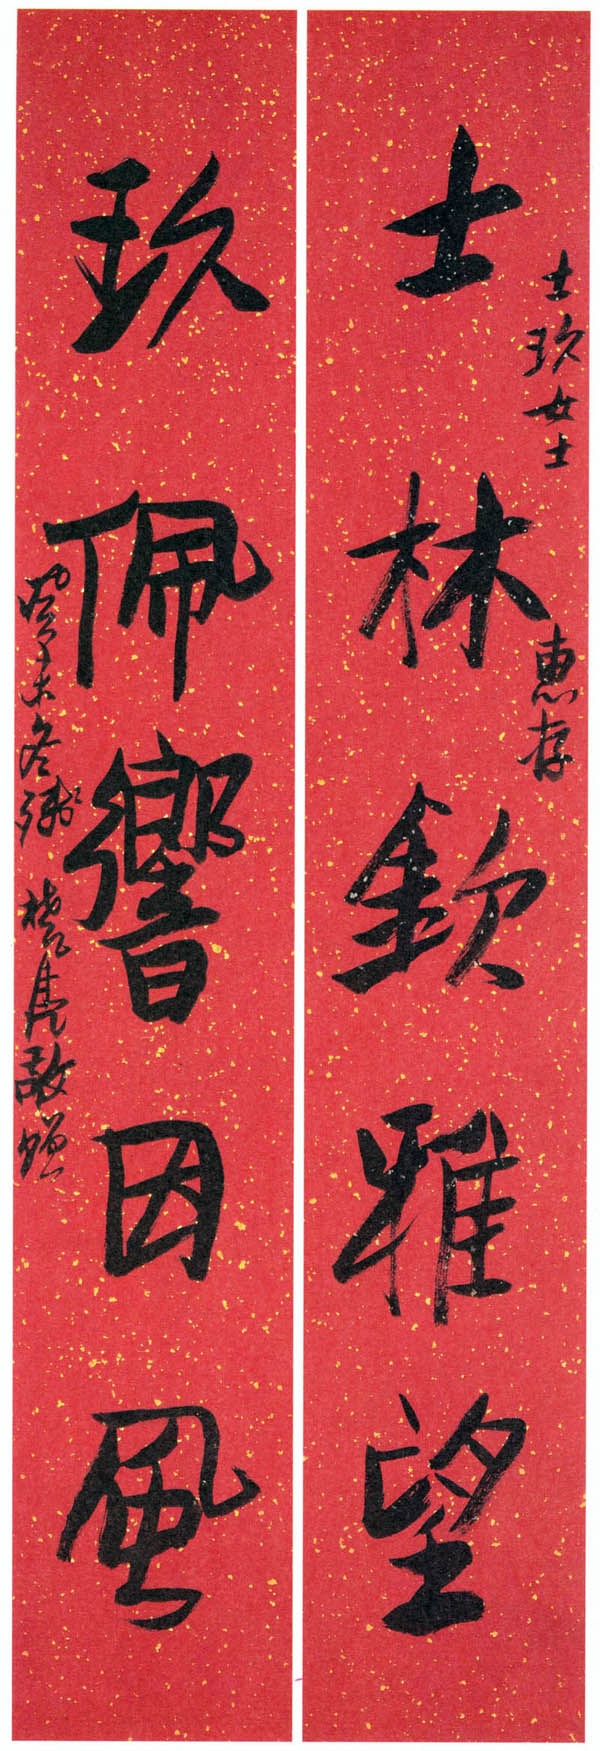 士玖女士
惠存
士林欽雅望
玖佩響因風
癸未冬殘
敬贈